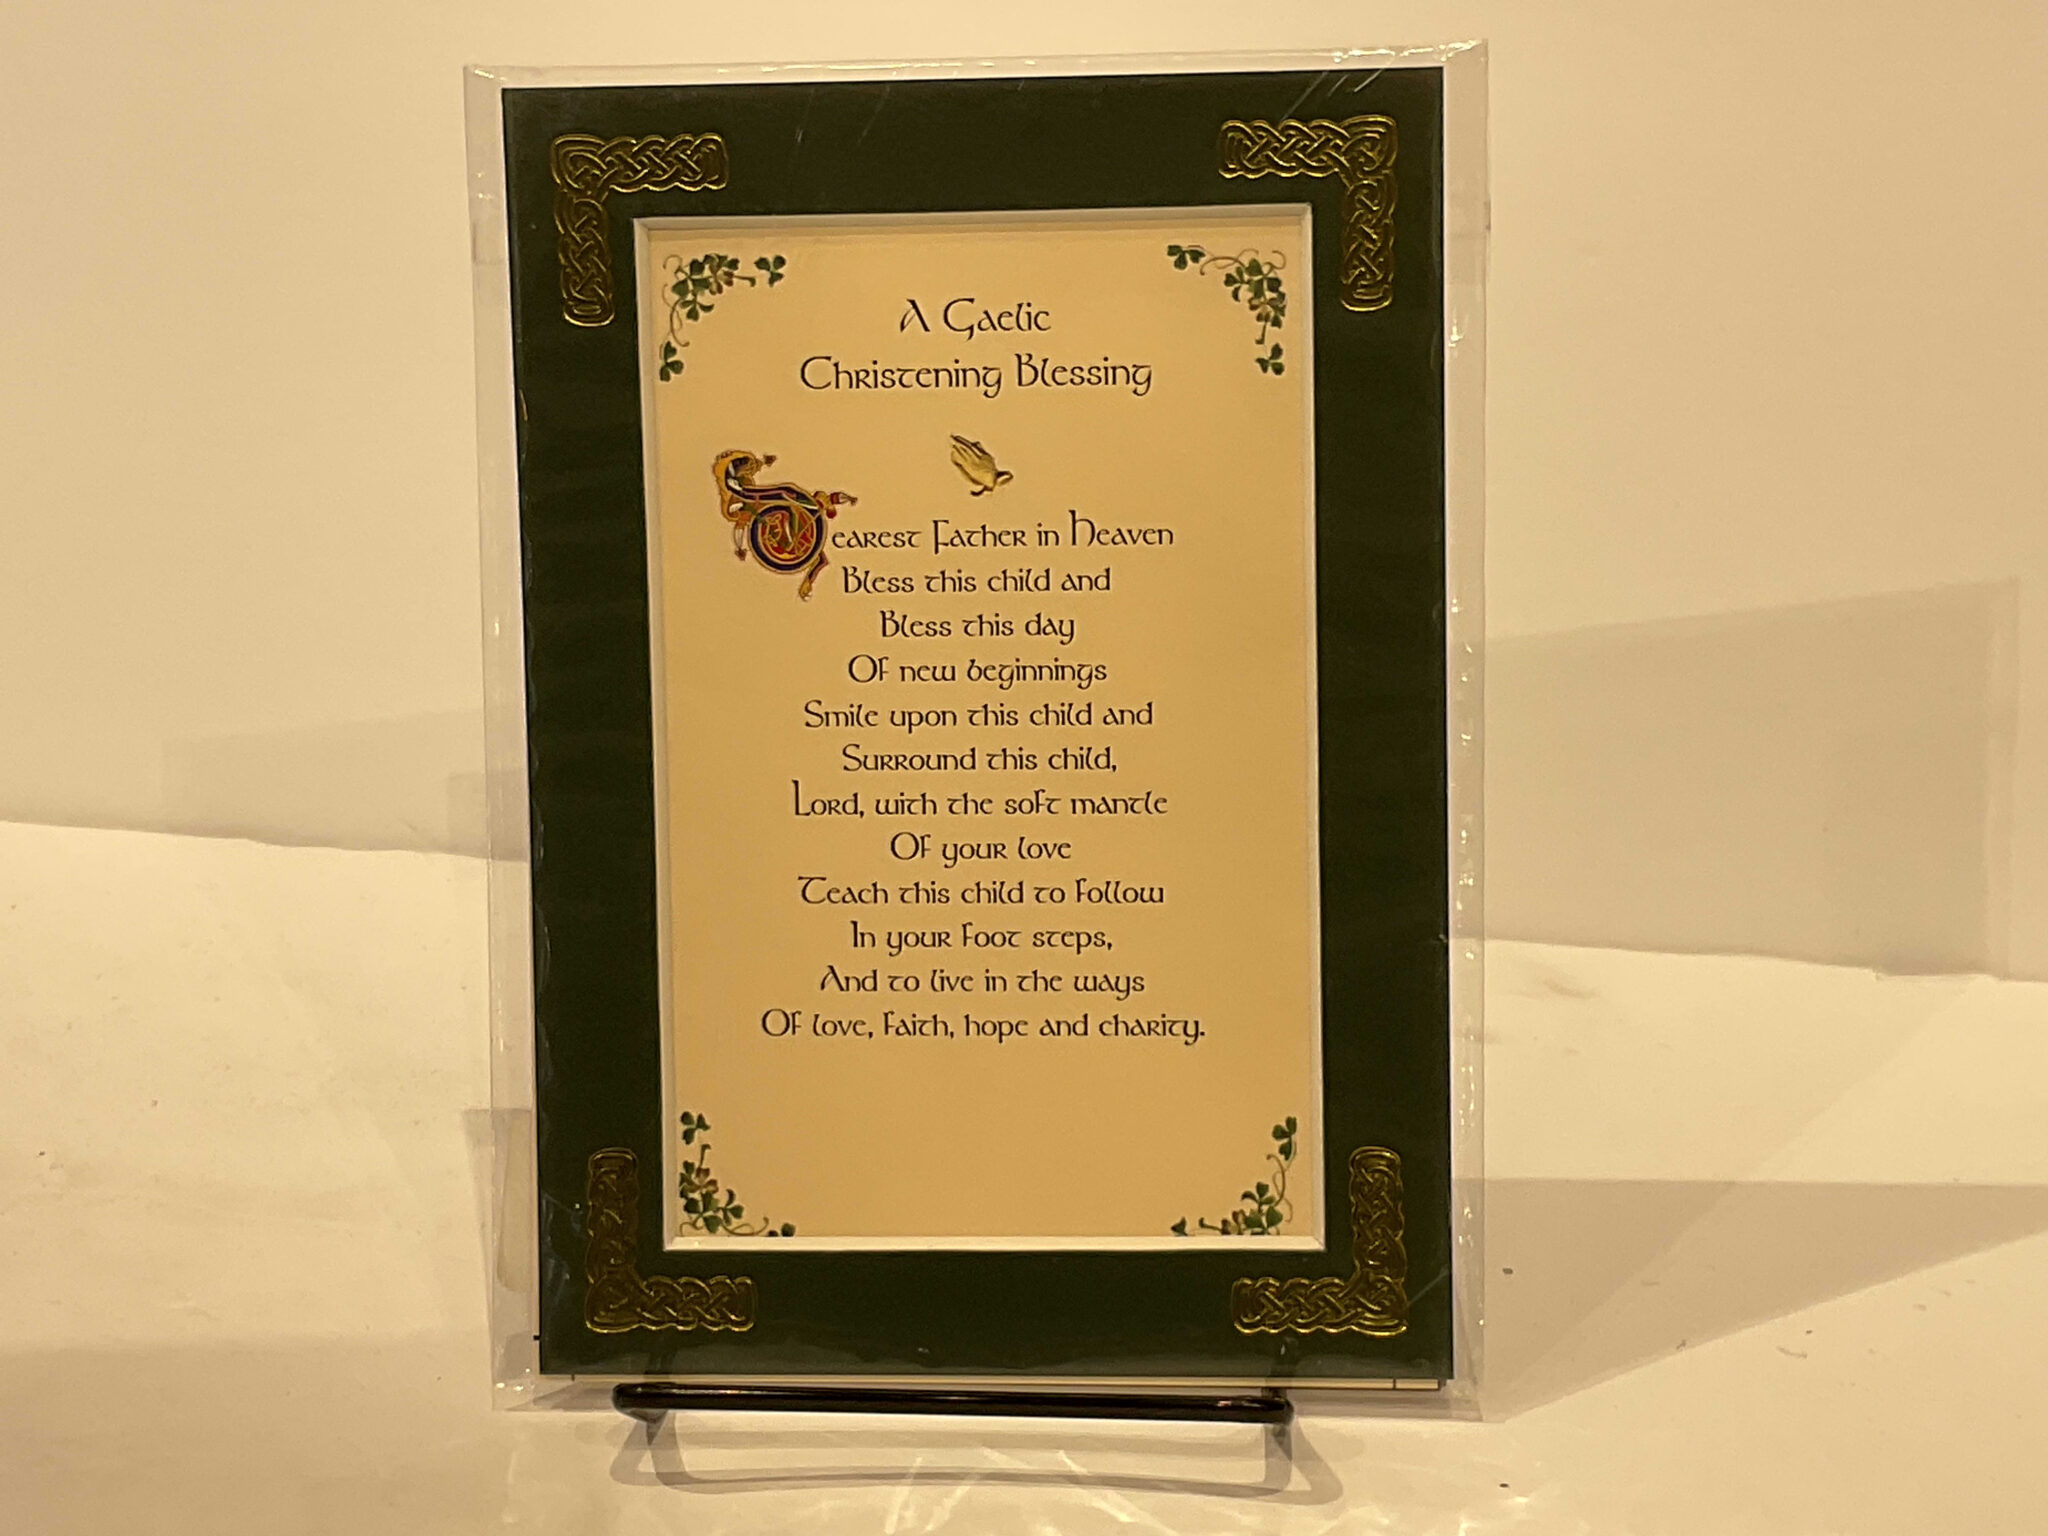 A Gaelic
Christening Blessing
Dearest Father in Heaven
Bless this child and
Bless this day
Of new beginnings
Smile upon this child and
Surround this child,
Lord, with the soft mantle
Of your love
Teach this child to follow
In your foot steps,
And to live in the ways
Of love, faith, hope and charity.